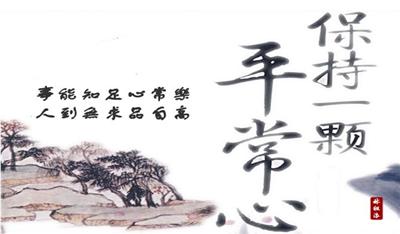 保持一颗
平常心
事能知足心常樂
人到無求品自高